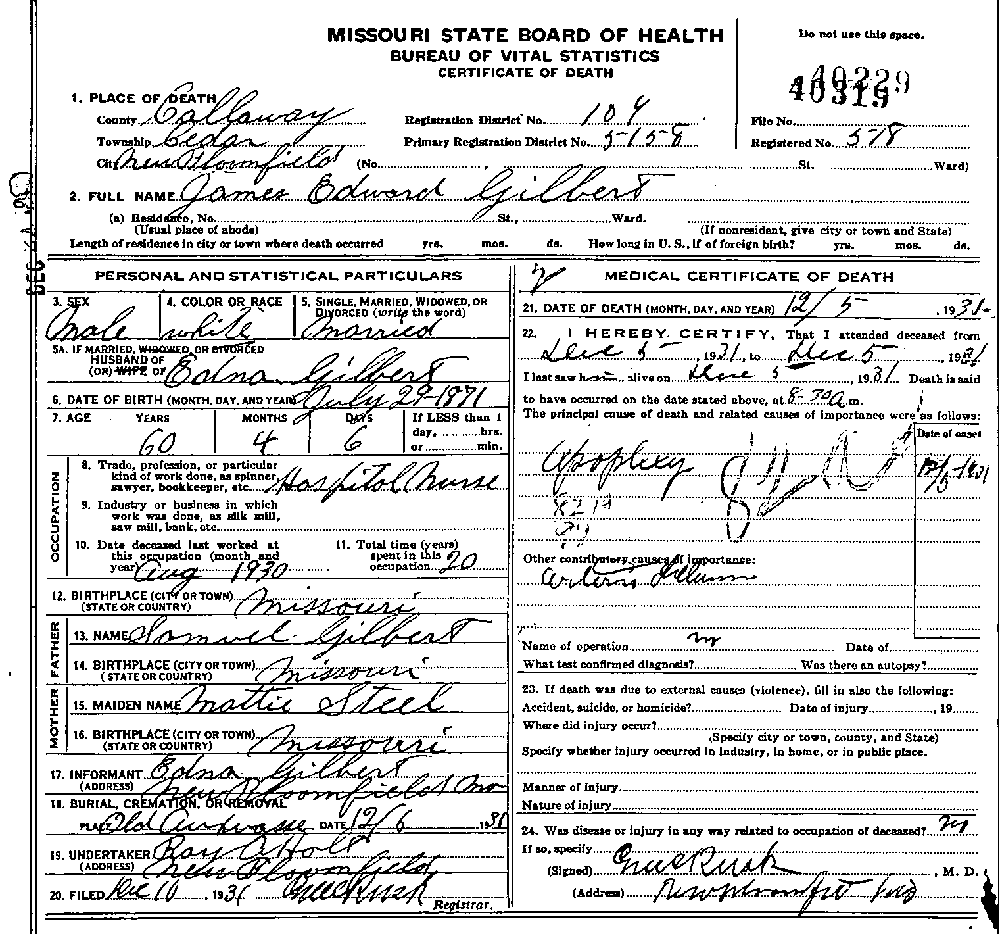 MISSOURI STATE BOARD OF HEALTH
BUREAU OF VITAL STATISTICS
CERTIFICATE OF DEATH
Do not use this space.
1. PLACE OF DEATH
County Callaway Registration District No. 104 File No.
Township Cedar Primary Registration District No. 5158 Registered No. 578
City New Bloomfield (No. St. Ward)
2. FULL NAME James Edward Gilbert
(a) Residence, No. St., Ward.
(Usual place of abode) (If nonresident, give city or town and State)
Length of residence in city or town where death occurred yrs. mos. ds. How long in U. S., if of foreign birth? yrs. mos. ds.
PERSONAL AND STATISTICAL PARTICULARS
3. SEX 4. COLOR OR RACE 5. SINGLE, MARRIED, WIDOWED, OR
DIVORCED (write the word)
Male white Married
5A. IF MARRIED, WIDOWED, OR DIVORCED
HUSBAND OF
(OR) WIFE OF Edna Gilbert
6. DATE OF BIRTH (MONTH, DAY, AND YEAR) July 29-1871
7. AGE YEARS MONTHS DAYS If LESS than 1
day, hrs.
60 4 6 or min.
OCCUPATION
8. Trade, profession, or particular
kind of work done, as spinner,
sawyer, bookkeeper, etc. Hospital Nurse
9. Industry or business in which
work was done, as silk mill,
saw mill, bank, etc.
10. Date deceased last worked at
this occupation (month and
year) Aug 1930
11. Total time (years)
spent in this
occupation 20
12. BIRTHPLACE (CITY OR TOWN)
(STATE OR COUNTRY) Missouri
FATHER
13. NAME Samuel Gilbert
14. BIRTHPLACE (CITY OR TOWN)
(STATE OR COUNTRY) Missouri
MOTHER
15. MAIDEN NAME Mattie Steel
16. BIRTHPLACE (CITY OR TOWN)
(STATE OR COUNTRY) Missouri
17. INFORMANT Edna Gilbert
(ADDRESS) New Bloomfield Mo
18. BURIAL, CREMATION, OR REMOVAL
PLACE Old Auxvasse DATE 12/6 1931
19. UNDERTAKER Roy C Holt
(ADDRESS) New Bloomfield
20. FILED Dec 10, 1931
Registrar.
MEDICAL CERTIFICATE OF DEATH
21. DATE OF DEATH (MONTH, DAY, AND YEAR) 12/5, 1931
22. I HEREBY CERTIFY, That I attended deceased from
Dec 5, 1931, to Dec 5, 1931
I last saw h alive on Dec 5, 1931. Death is said
to have occurred on the date stated above, at 8-30 a. m.
The principal cause of death and related causes of importance were as follows:
Date of onset
Apoplexy 12/5-1931
82 A
Other contributory causes of importance:
Name of operation Date of
What test confirmed diagnosis? Was there an autopsy?
23. If death was due to external causes (violence), fill in also the following:
Accident, suicide, or homicide? Date of injury , 19
Where did injury occur?
(Specify city or town, county, and State)
Specify whether injury occurred in industry, in home, or in public place.
Manner of injury
Nature of injury
24. Was disease or injury in any way related to occupation of deceased?
If so, specify
(Signed) , M. D.
(Address) New Bloomfield